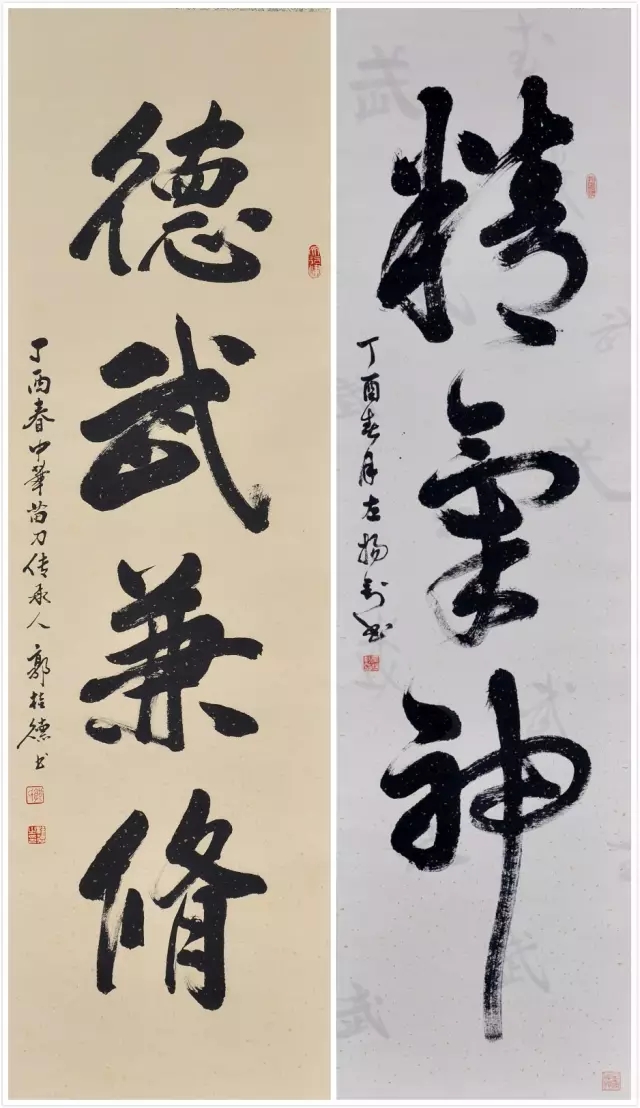 德武兼脩
丁酉春中華苗刀传承人郭桂德书
精氣神
丁酉春月左揚剑书